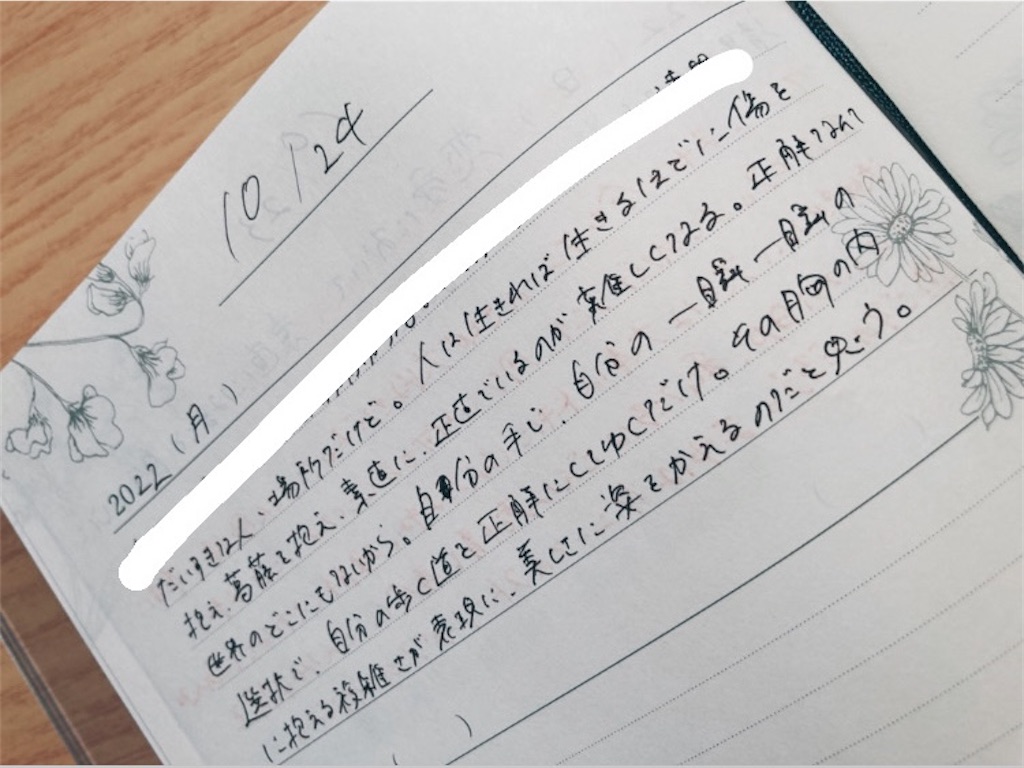 10/24
2022 (月)
だいすきな人、場所だけど。人は生きれば生きるほどに傷を
抱え、葛藤を抱え、素直に、正直でいるのが難しくなる。正解なんて
世界のどこにもないから。自分の手で、自分の一歩一歩の
選択で、自分の歩く道を正解にしてゆくだけ。その内
に抱える複雑さが表現に、美しさに姿をかえるのだと思う。
( )